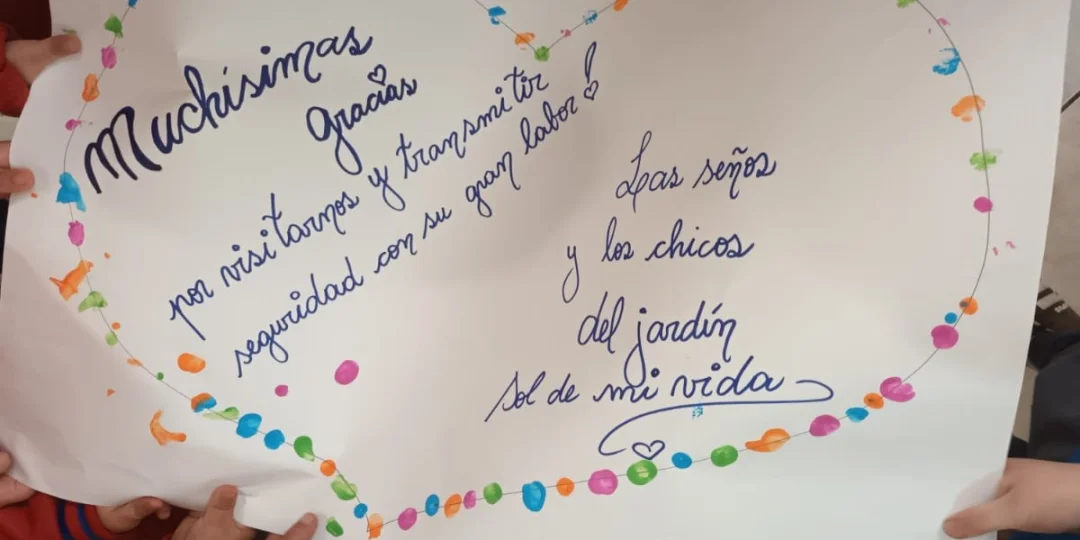 Muchísimas
gracias
por visitarnos y transmitir
seguridad con su gran labor!
Las seños
y los chicos
del jardín
sol de mi vida